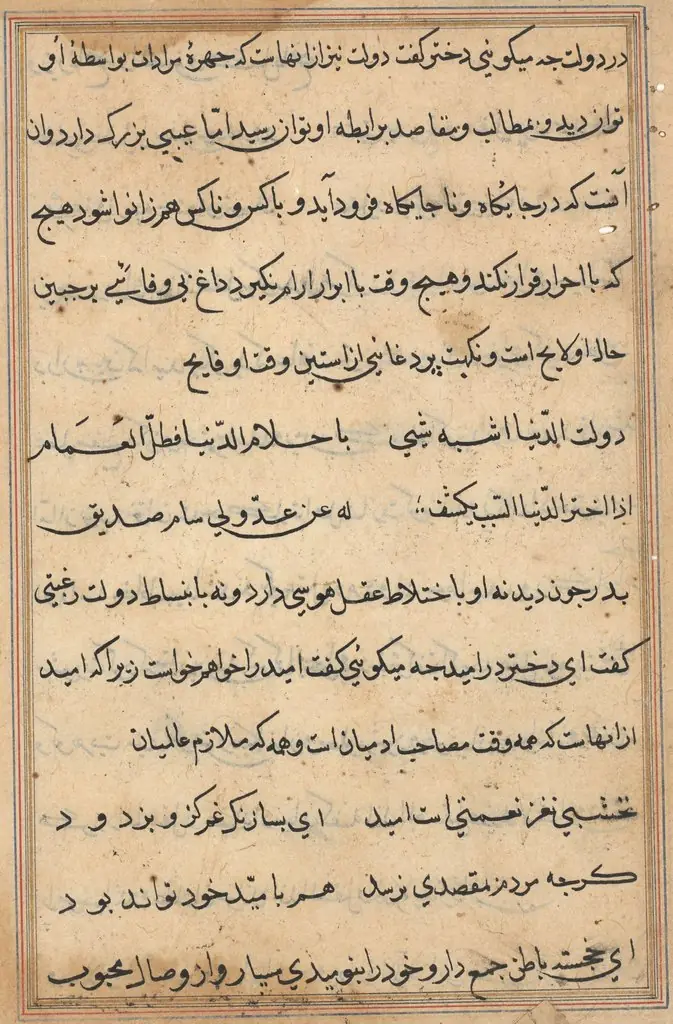 در دولت جه میکوئی دختر کفت دولت نیز از انهاست که جهرهٔ مرادات بواسطهٔ او
توان دید و بمطالب و مقاصد برابطه او توان رسید امّا عیبی بزرک دارد وان
آنست که در جایکاه و ناجایکاه فرود آید و با کس و ناکس همزانو شود هیج
که با احرار قرار نکند و هیج وقت با ابرار ارام نکیرد داغ بی وفائیی بر جبین
حال او لایح است و نکهت پر دغائی از استین وقت او فایح
دولت الدّنیا اشبه شیی با حلام الدّنیا فطلّ الغمام
اذا اختر الدّنیا لبیب یکشف له عن عدّو لی سام صدیق
بدر جون دید نه او با ختلاط عقل هوسی دارد و نه با بنساط دولت رغبتی
کفت ای دختر در امید جه میکوئی کفت امید را خواهم خواست زیراکه امید
از انهاست که همه وقت مصاحب ادمیان است و همه که ملازم عالمیان
نخشبی نغز نعمتی است امید ای بسا زنک غم کزو بزدود
کرجه مردم بمقصدی نرسد هم بامیّد خود تواند بود
ای خجسته باطن جمع دار و خود را بنومیدی مسپار و از وصال محبوب